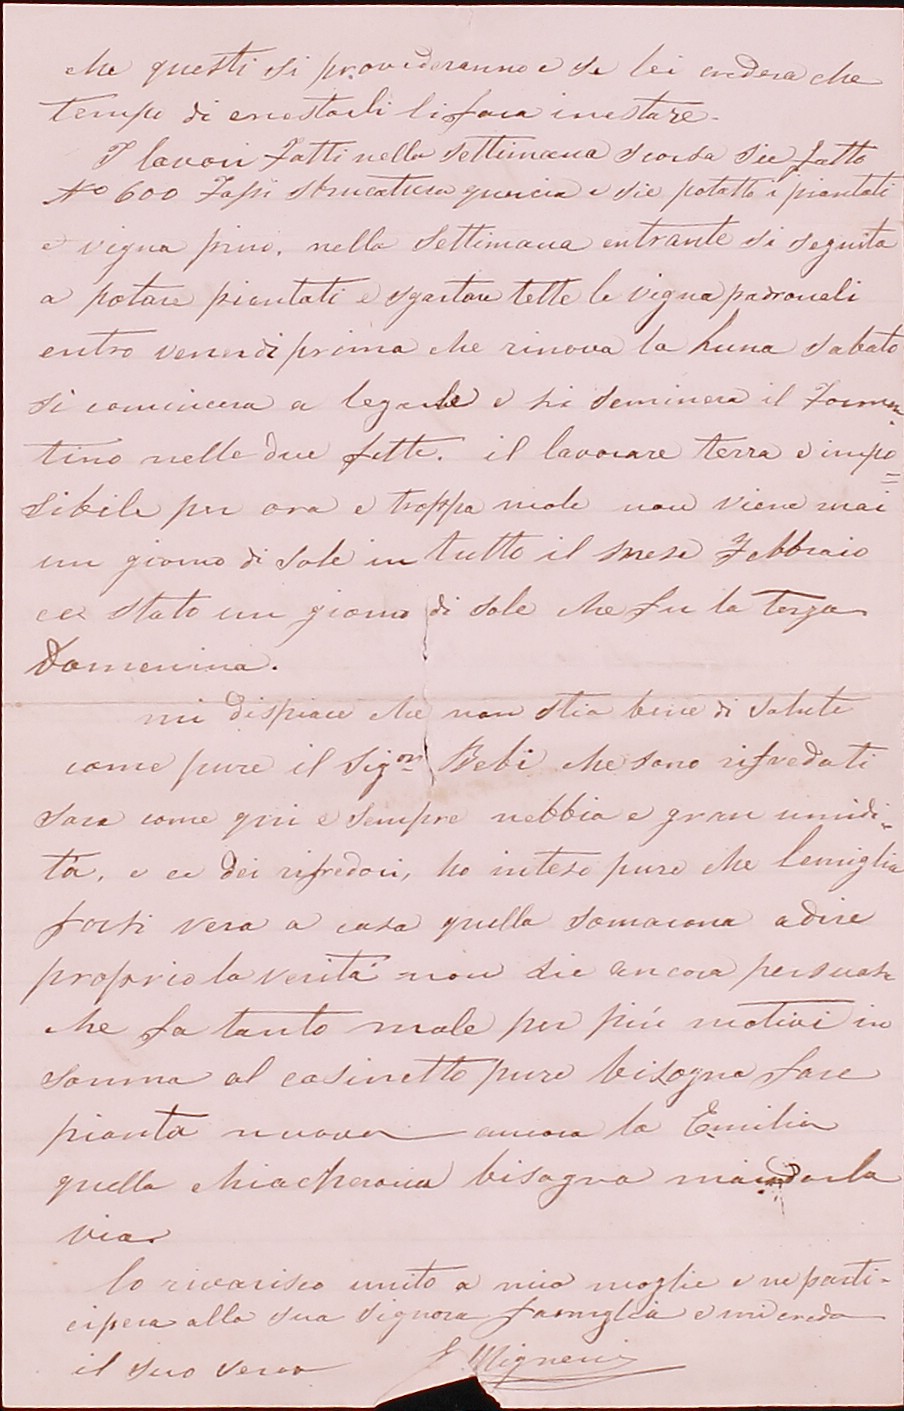 che questi si provederanno e se lei credera che
tempo di enestarli li fara inestare.
I lavori fatti nella settimana scorsa sie fatto
No 600 Fassi strucatura quercia e sie potatto i piantati
e vigna pino. nella settimana entrante si seguita
a potare piantati e sgartare tette le vigna padronali
entro venerdi prima che rinova la Luna sabato
si comincera a legarle e si seminera il Formen
tino nelle due fette. il lavorare terra e impo=
sibile per ora e troppa mole non viene mai
un giorno di sole in tutto il mese Febbraio
ce stato un giorno di sole che fu la terza
Domenina.
mi dispiace che non stia bene di salute
come pure il Sigor Bebi che sono rifredati
sara come qui e sempre nebbia e gran umidi-
tà, e ce dei rifredori, ho inteso pure che lemiglia
forsi vera a casa quella somarona a dire
proprio la verità non sie ancora persuasa
che fa tanto male per più motivi in
somma al casinetto pure bisogna fare
pianta nuova ancora la Emilia
quella chiacherona bisogna mandarla
via.
lo riverisco unito a mia moglie e ne parti-
cipera alla sua signora famiglia e mi creda
il suo servo Migneri